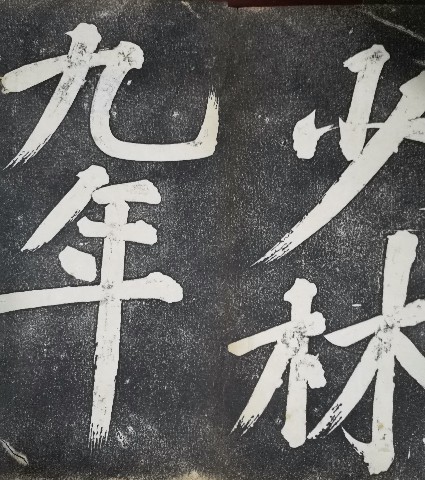 少林
九年